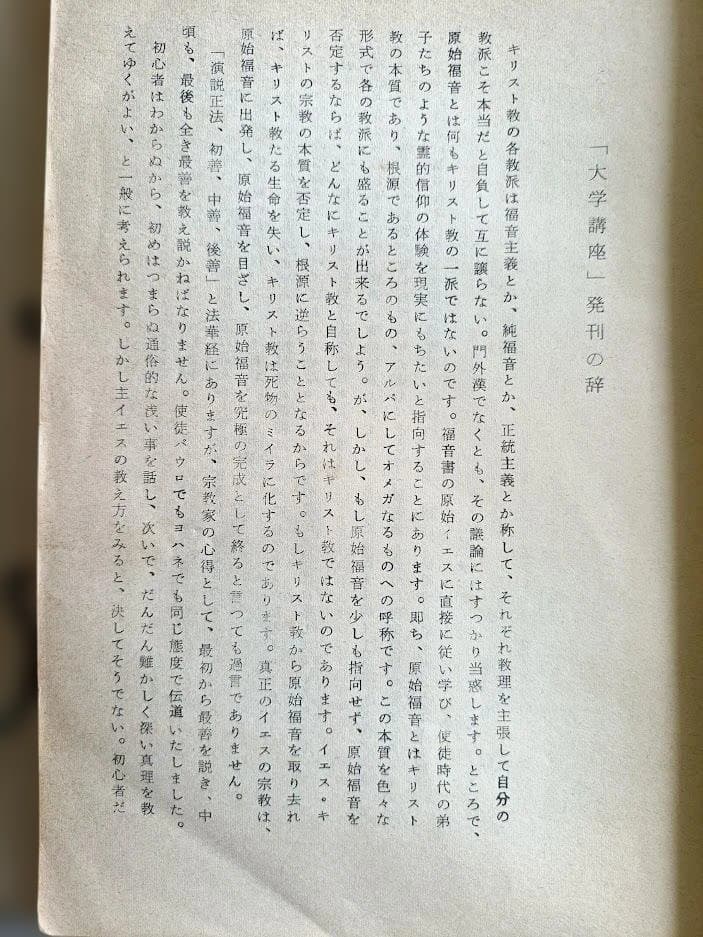 「大学講座」発刊の辞
キリスト教の各教派は福音主義とか、純福音とか、正統主義とか称して、それぞれ教理を主張して自分の
教派こそ本当だと自負して互に譲らない。門外漢でなくとも、その議論にはすつかり当惑します。ところで、
原始福音とは何もキリスト教の一派ではないのです。福音書の原始イエスに直接に従い学び、使徒時代の弟
子たちのような霊的信仰の体験を現実にもちたいと指向することにあります。即ち、原始福音とはキリスト
教の本質であり、根源であるところのもの、アルパにしてオメガなるものへの呼称です。この本質を色々な
形式で各の教派にも盛ることが出来るでしよう。が、しかし、もし原始福音を少しも指向せず、原始福音を
否定するならば、どんなにキリスト教と自称しても、それはキリスト教ではないのであります。イエス・キ
リストの宗教の本質を否定し、根源に逆らうこととなるからです。もしキリスト教から原始福音を取り去れ
ば、キリスト教たる生命を失い、キリスト教は死物のミイラに化するのであります。真正のイエスの宗教は、
原始福音に出発し、原始福音を目ざし、原始福音を究極の完成として終ると言つても過言でありません。
「演説正法、初善、中善、後善」と法華経にありますが、宗教家の心得として、最初から最善を説き、中
頃も、最後も全き最善を教え説かねばなりません。使徒パウロでもヨハネでも同じ態度で伝道いたしました。
初心者はわからぬから、初めはつまらぬ通俗的な浅い事を話し、次いで、だんだん難かしく深い真理を教
えてゆくがよい、と一般に考えられます。しかし主イエスの教え方をみると、決してそうでない。初心者だ